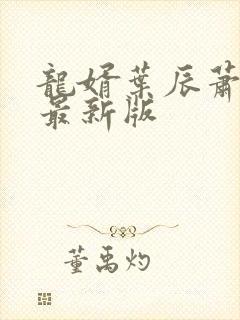 龍婿葉辰蕭
最新版
董禹灼